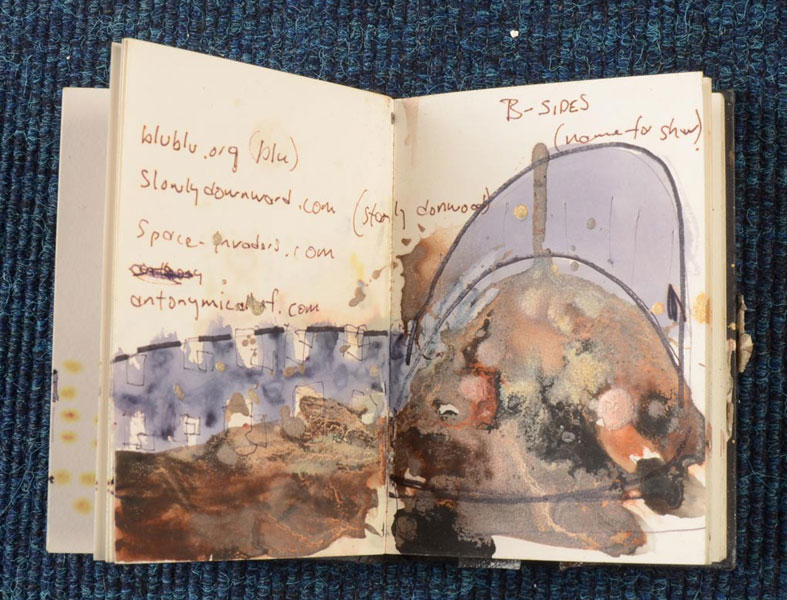 blublu.org (blu)
Slowlydownward.com (stanly donwood)
Space-invaders.com
antonymicallef.com
B-SIDES
(name for show)